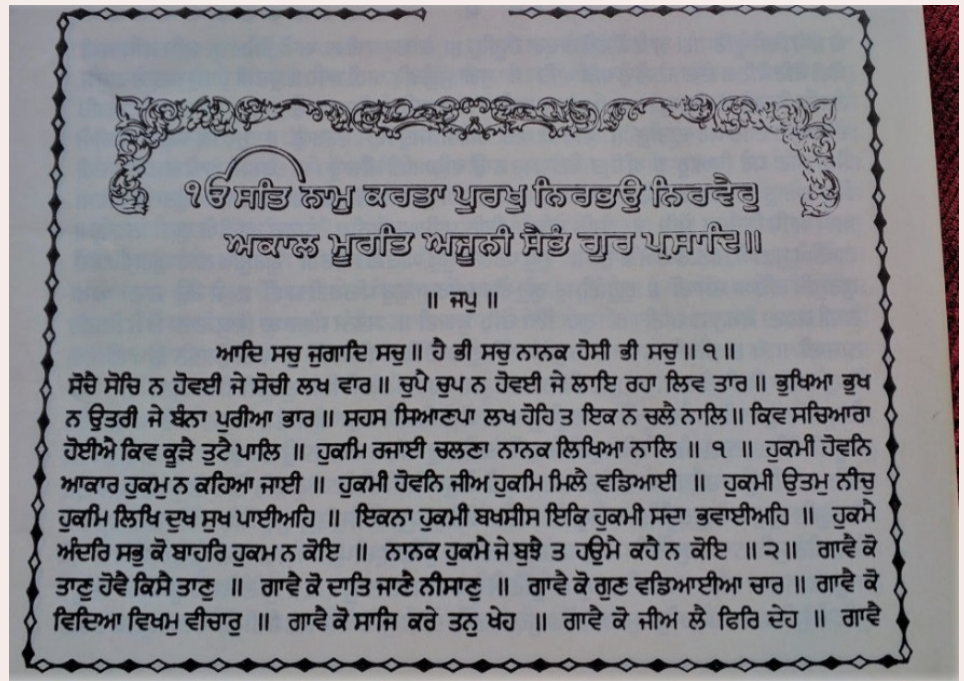 ੧ੳ ਸਤਿ ਨਾਮੁ ਕਰਤਾ ਪੁਰਖੁ ਨਿਰਭਉ ਨਿਰਵੈਰੁ
ਅਕਾਲ ਮੂਰਤਿ ਅਜੂਨੀ ਸੈਭੰ ਗੁਰ ਪ੍ਰਸਾਦਿ॥
॥ ਜਪੁ ॥
ਆਦਿ ਸਚੁ ਜੁਗਾਦਿ ਸਚੁ॥ ਹੈ ਭੀ ਸਚੁ ਨਾਨਕ ਹੋਸੀ ਭੀ ਸਚੁ॥ ੧ ॥
ਸੋਚੈ ਸੋਚਿ ਨ ਹੋਵਈ ਜੇ ਸੋਚੀ ਲਖ ਵਾਰ॥ ਚੁਪੈ ਚੁਪ ਨ ਹੋਵਈ ਜੇ ਲਾਇ ਰਹਾ ਲਿਵ ਤਾਰ॥ ਭੁਖਿਆ ਭੁਖ
ਨ ਉਤਰੀ ਜੇ ਬੰਨਾ ਪੁਰੀਆ ਭਾਰ॥ ਸਹਸ ਸਿਆਣਪਾ ਲਖ ਹੋਹਿ ਤ ਇਕ ਨ ਚਲੈ ਨਾਲਿ॥ ਕਿਵ ਸਚਿਆਰਾ
ਹੋਈਐ ਕਿਵ ਕੂੜੈ ਤੁਟੈ ਪਾਲਿ ॥ ਹੁਕਮਿ ਰਜਾਈ ਚਲਣਾ ਨਾਨਕ ਲਿਖਿਆ ਨਾਲਿ ॥ ੧ ॥ ਹੁਕਮੀ ਹੋਵਨਿ
ਆਕਾਰ ਹੁਕਮੁ ਨ ਕਹਿਆ ਜਾਈ ॥ ਹੁਕਮੀ ਹੋਵਨਿ ਜੀਅ ਹੁਕਮਿ ਮਿਲੈ ਵਡਿਆਈ ॥ ਹੁਕਮੀ ਉਤਮੁ ਨੀਚੁ
ਹੁਕਮਿ ਲਿਖਿ ਦੁਖ ਸੁਖ ਪਾਈਅਹਿ ॥ ਇਕਨਾ ਹੁਕਮੀ ਬਖਸੀਸ ਇਕਿ ਹੁਕਮੀ ਸਦਾ ਭਵਾਈਅਹਿ ॥ ਹੁਕਮੈ
ਅੰਦਰਿ ਸਭੁ ਕੋ ਬਾਹਰਿ ਹੁਕਮ ਨ ਕੋਇ ॥ ਨਾਨਕ ਹੁਕਮੈ ਜੇ ਬੁਝੈ ਤ ਹਉਮੈ ਕਹੈ ਨ ਕੋਇ ॥੨॥ ਗਾਵੈ ਕੋ
ਤਾਣੁ ਹੋਵੈ ਕਿਸੈ ਤਾਣੁ ॥ ਗਾਵੈ ਕੋ ਦਾਤਿ ਜਾਣੈ ਨੀਸਾਣੁ ॥ ਗਾਵੈ ਕੋ ਗੁਣ ਵਡਿਆਈਆ ਚਾਰ॥ ਗਾਵੈ ਕੋ
ਵਿਦਿਆ ਵਿਖਮੁ ਵੀਚਾਰੁ ॥ ਗਾਵੈ ਕੋ ਸਾਜਿ ਕਰੇ ਤਨੁ ਖੇਹ ॥ ਗਾਵੈ ਕੋ ਜੀਅ ਲੈ ਫਿਰਿ ਦੇਹ ॥ ਗਾਵੈ